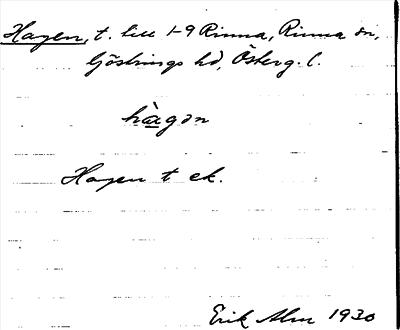 Hagen, t. till 1-9 Rinna, Rinna sn,
Göstrings hd, Österg. l.
hàgən
Hagen t ek.
Erik Alm 1930